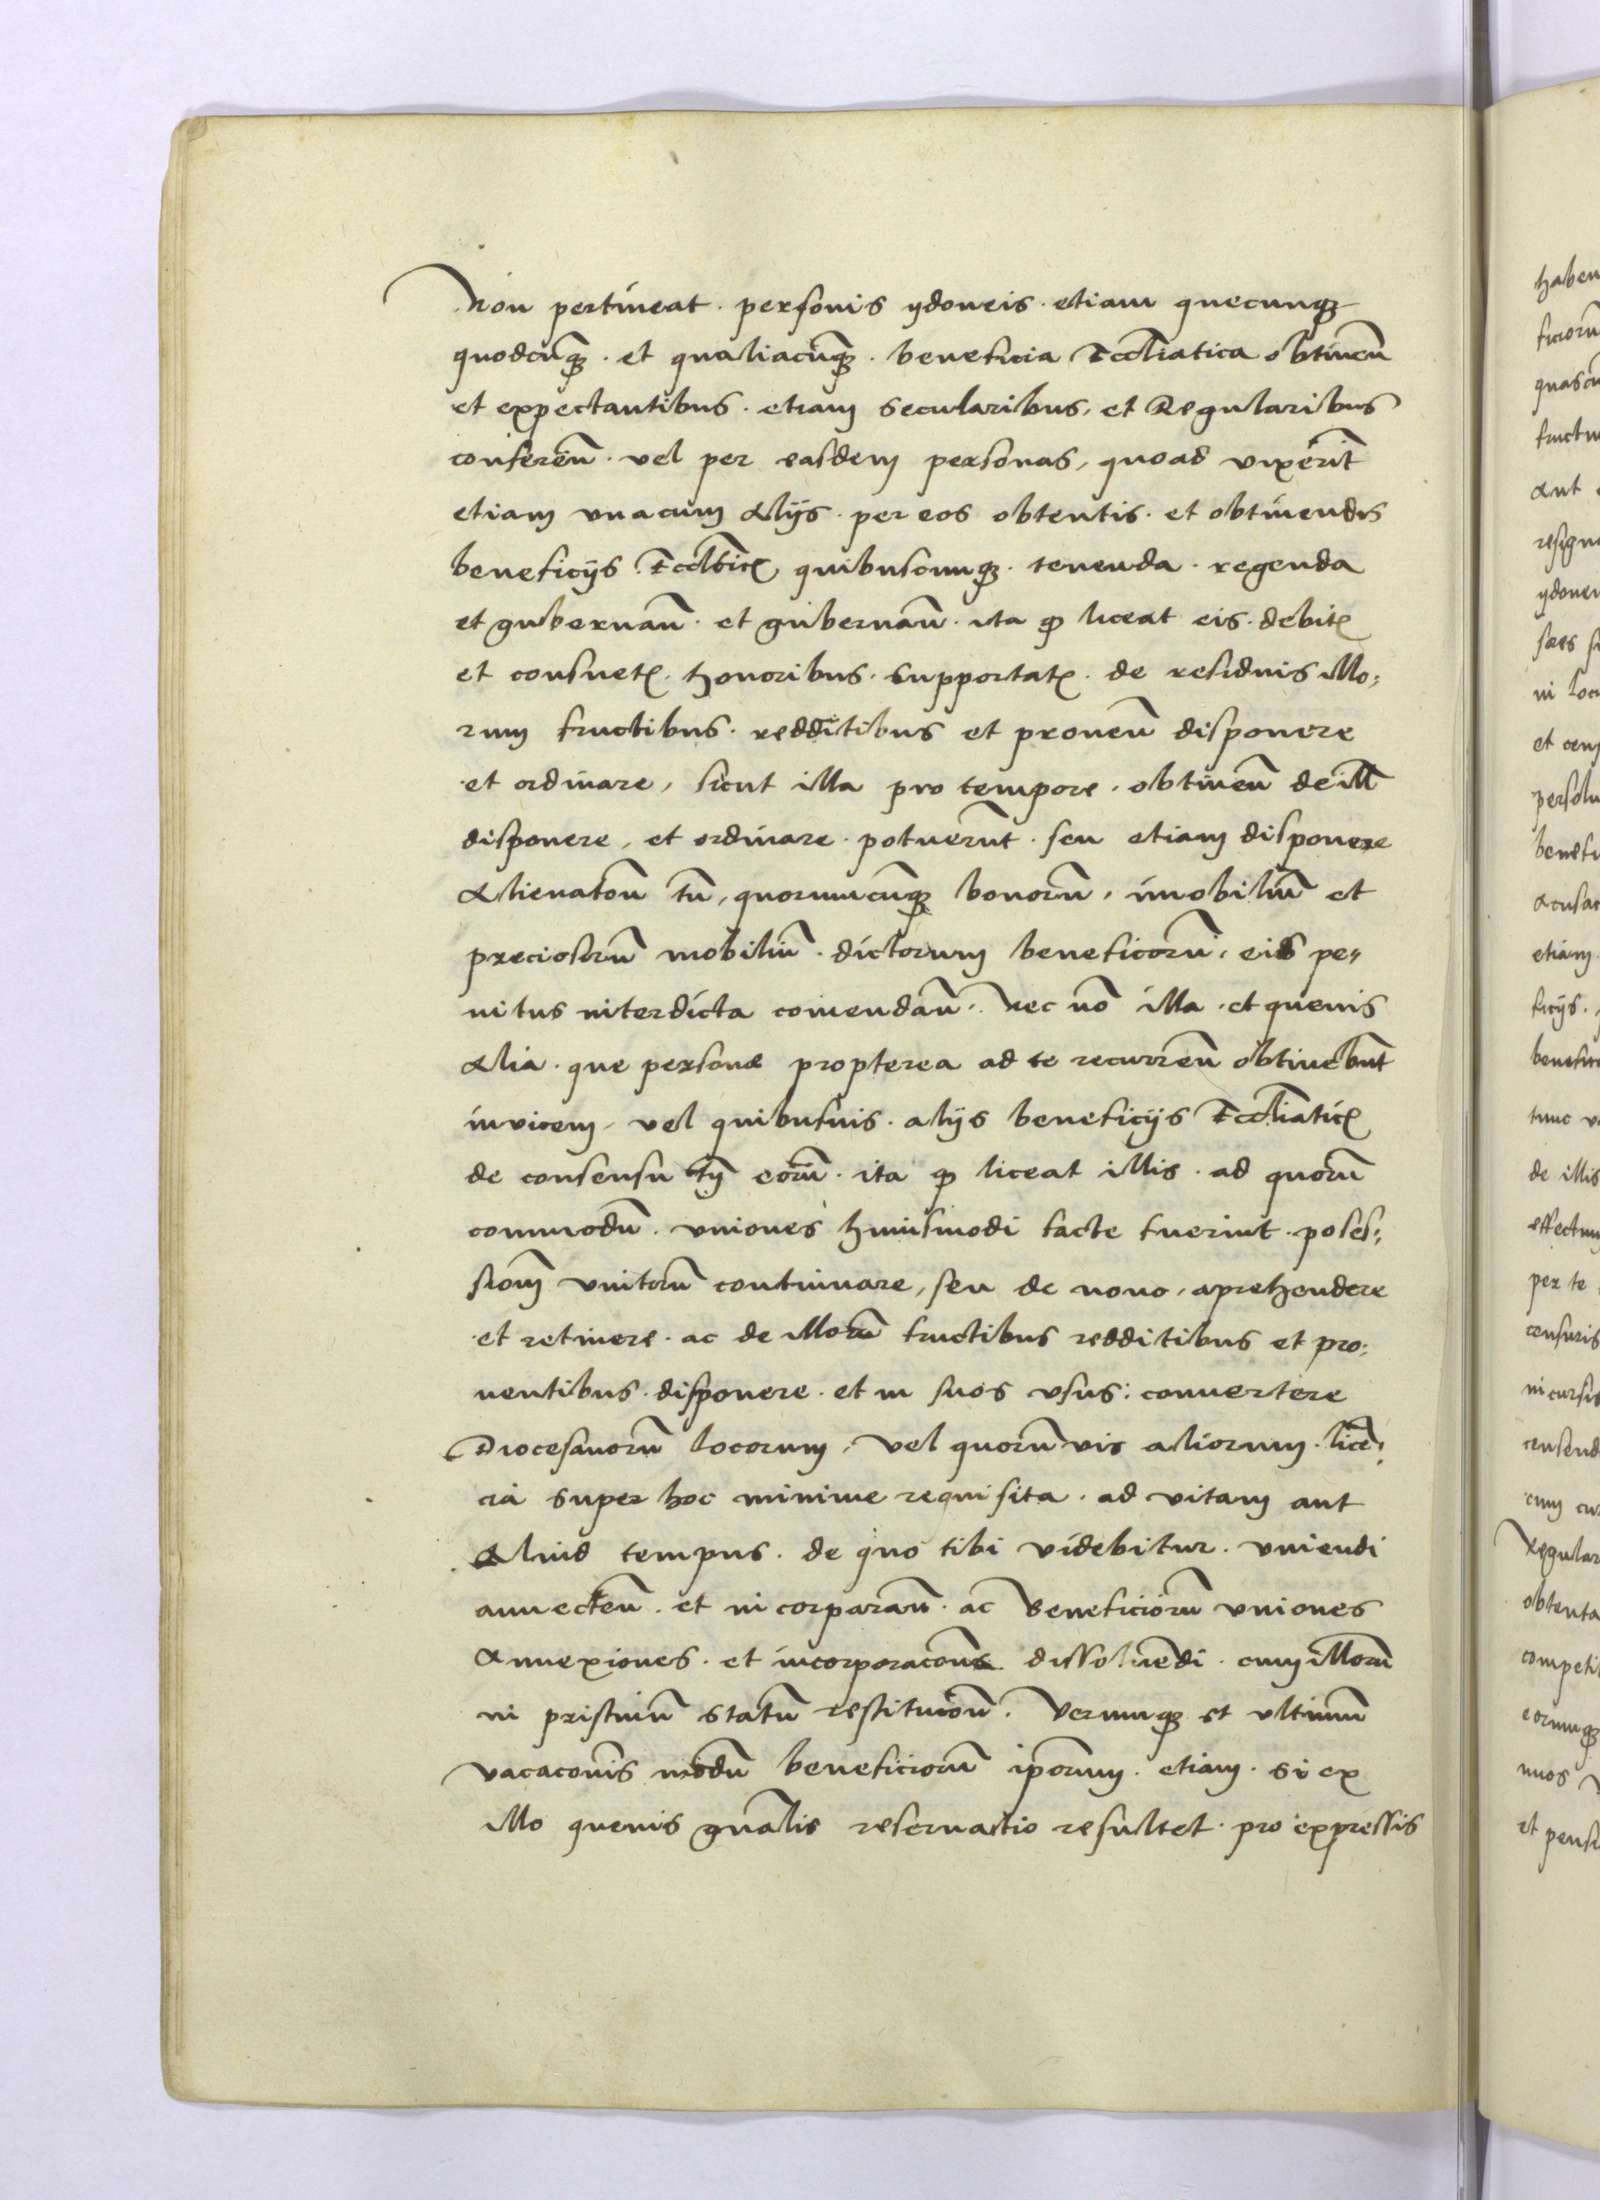 Non pertineat . personis ydoneis . etiam quecunqȝ
quodcūqȝ . et qualiacūqȝ . beneficia Eccl̄iatica obtineñ
et expectantibus . etiam secularibus, et Regularibus
confereñ . vel per easdem personas, quoad vixerīt
etiam vnacum alijs . per eos obtentis . et obtinendis
beneficijs . Eccl̄iicꝭ quibuscunqȝ . tenenda . regenda
et gubernañ . et gubernañ . ita ꝙ liceat eis . debitꝭ
et consuetꝭ . honoribus . supportatꝭ . de residuis illo:
rum fructibus . redditibus et proueñ disponere
et ordinare, sicut illa pro tempore . obtineñ de ill̄
disponere, et ordinare . potuerūt . seu etiam disponere
alienatōn tn̄, quorumcūqȝ bonorū, īmobiliū et
preciosorū mobiliū . dictorum beneficorū, eis pe:
nitus interdicta comendañ . Nec nō illa . et queuis
alia . que persone propterea ad te recurreñ obtinebūt
inuicem, vel quibusuis . alijs beneficijs Eccl̄iaticꝭ
de consensu tn̄ eorū . ita ꝙ liceat illis . ad quorū
commodū . vniones huiusmodi facte fuerint . poses:
siom̄ vnitorū continuare, seu de nouo, aprehendere
et retinere . ac de illorū fructibus redditibus et pro:
uentibus . disponere . et in suos vsus: conuertere
Diocesanorū locorum, vel quorūvis aliorum . licē:
cia super hoc minime requisita . ad vitam aut
aliud tempus . de quo tibi videbitur . vniendi
annecteñ . et incorparañ . ac beneficiorū vniones
annexiones . et incorporacōns dissoluēdi . cum illorū
in pristinū statū restitucioñ . Verumqȝ et vltimū
vacacōnis modū beneficiorū ip̄orum . etiam . si ex
illo queuis gn̄alis reseruatio resultet . pro expressis
haben
ficiorū
fructu
aut
ydonei
et cen
persolu
benefi
etiam
ficijs .
benefi
tunc v
de illis
effectum
per te
censuris
cum cu
Regular
obtenta
competi
eorumqȝ
nuos
et pensi